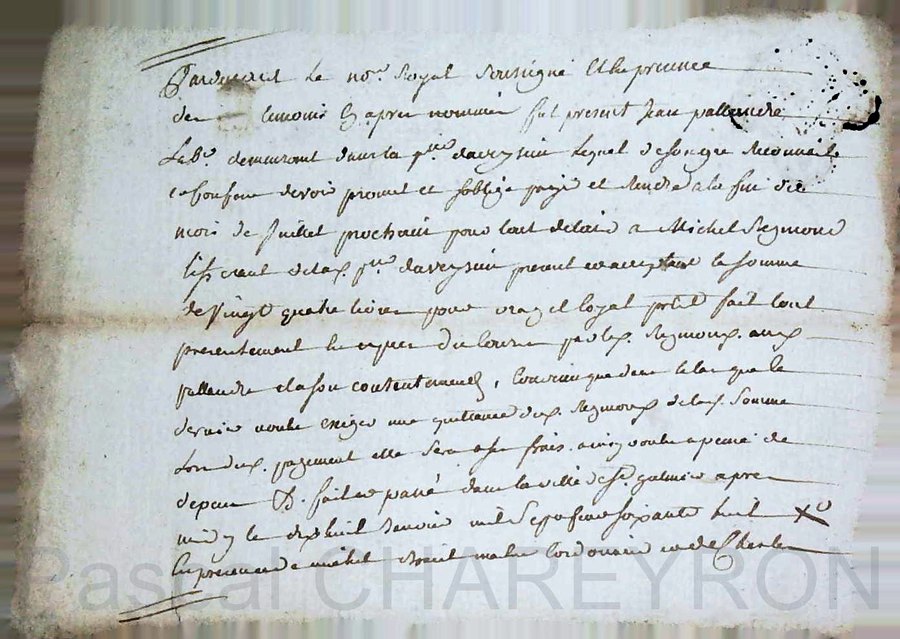 Pardevant Le no.re Royal Soussigné Et En presence
des temoins Cy apres nommés fut present Jean pallandre
Lab.r demeurant dans la p.sse daveysieu Lequel de son gre Reconnait
et Confesse devoir promet et soblige payer et Rendre a la fin du
mois de Juillet prochain pour tout delaid a Michel Reymond
tisserant de lad. p.sse daveysieu present acceptant la somme
de Vingt quatre livres pour vray et loyal prêt fait tout
presentement En especes du Cours par led. Reymond aud.
pallandre et a son contentement, Convenu que dans le Cas que le
dernier voulut exiger une quittance dud. Reymond de lad. Somme
Lors dud. payement elle Sera a ses frais ainsy voulu a peine de
depens &. fait et passé dans la ville de St. galmier apres
midy le dix huit Janvier mil Sept cent soixante huit
En presence de michel maitre Cordonnier et de Charles
Pascal CHAREYRON